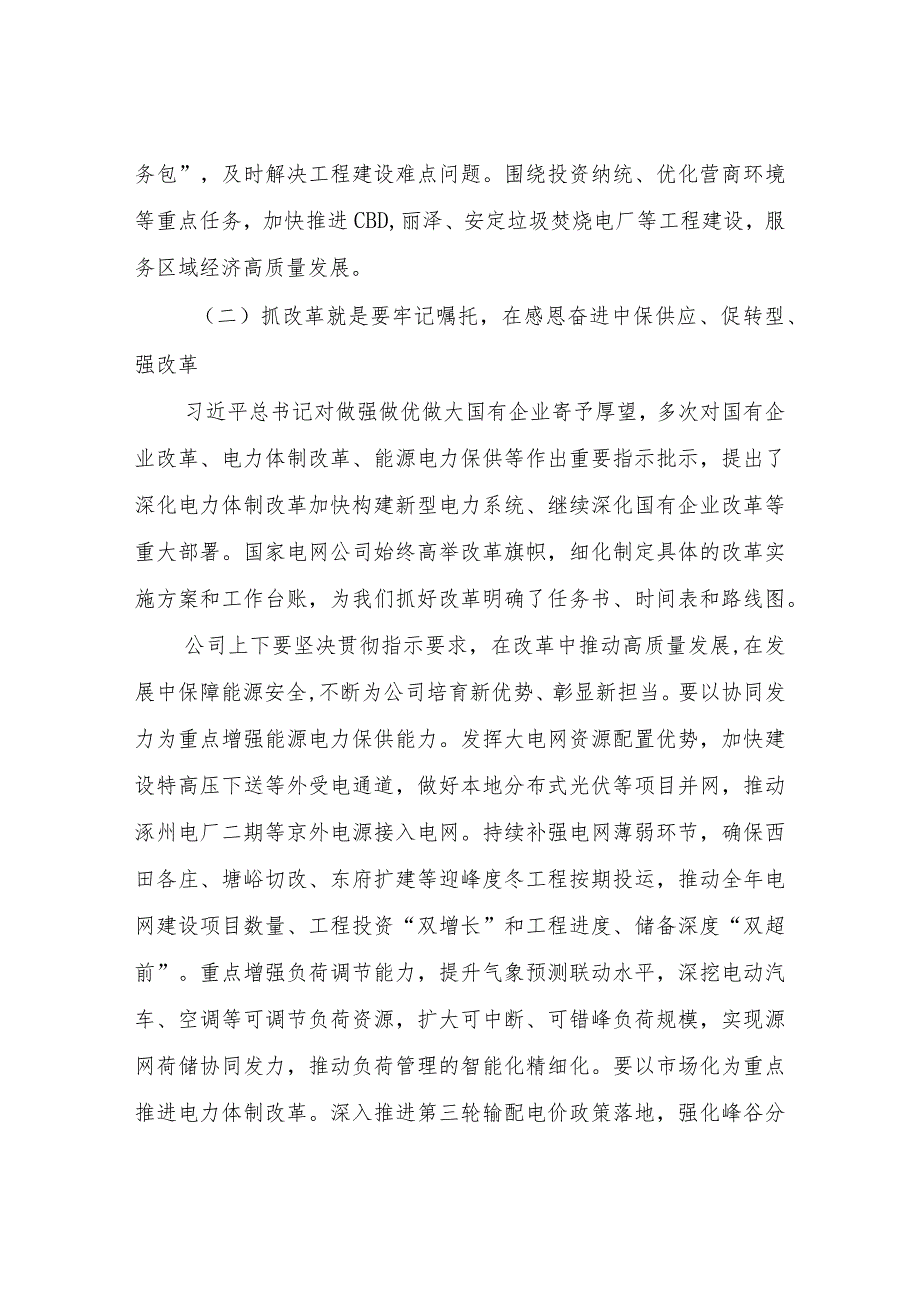 务包”，及时解决工程建设难点问题。围绕投资纳统、优化营商环境
等重点任务，加快推进CBD,丽泽、安定垃圾焚烧电厂等工程建设，服
务区域经济高质量发展。
（二）抓改革就是要牢记嘱托，在感恩奋进中保供应、促转型、
强改革
习近平总书记对做强做优做大国有企业寄予厚望，多次对国有企
业改革、电力体制改革、能源电力保供等作出重要指示批示，提出了
深化电力体制改革加快构建新型电力系统、继续深化国有企业改革等
重大部署。国家电网公司始终高举改革旗帜，细化制定具体的改革实
施方案和工作台账，为我们抓好改革明确了任务书、时间表和路线图。
公司上下要坚决贯彻指示要求，在改革中推动高质量发展,在发
展中保障能源安全,不断为公司培育新优势、彰显新担当。要以协同发
力为重点增强能源电力保供能力。发挥大电网资源配置优势，加快建
设特高压下送等外受电通道，做好本地分布式光伏等项目并网，推动
涿州电厂二期等京外电源接入电网。持续补强电网薄弱环节，确保西
田各庄、塘峪切改、东府扩建等迎峰度冬工程按期投运，推动全年电
网建设项目数量、工程投资“双增长”和工程进度、储备深度“双超
前”。重点增强负荷调节能力，提升气象预测联动水平，深挖电动汽
车、空调等可调节负荷资源，扩大可中断、可错峰负荷规模，实现源
网荷储协同发力，推动负荷管理的智能化精细化。要以市场化为重点
推进电力体制改革。深入推进第三轮输配电价政策落地，强化峰谷分